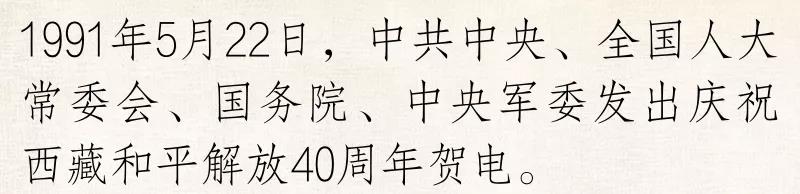 1991年5月22日，中共中央、全国人大
常委会、国务院、中央军委发出庆祝
西藏和平解放40周年贺电。